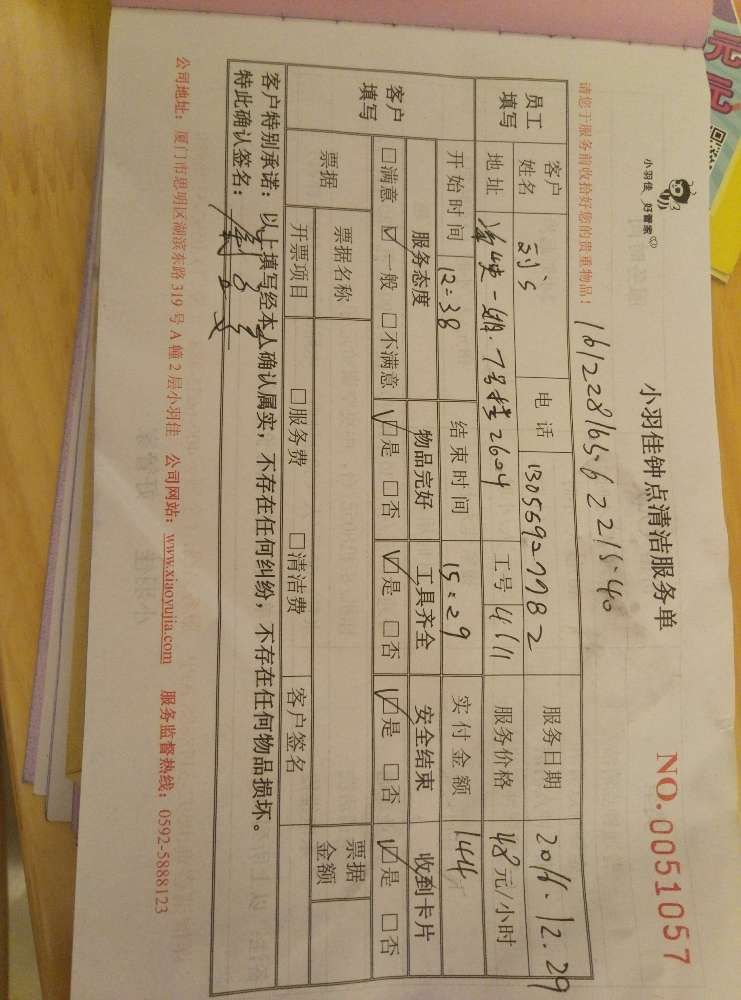 小羽佳 好管家
小羽佳钟点清洁服务单
NO.0051057
请您于服务前收拾好您的贵重物品！
员工填写
客户姓名 电话 13055927782 服务日期 2016.12.29
地址 7号楼2604 工号 4611 服务价格 48元/小时
开始时间 12:38 结束时间 15:29 实付金额 144
客户填写
服务态度 物品完好 工具齐全 安全结束 收到卡片
□满意 ☑一般 □不满意 ☑是 □否 ☑是 □否 ☑是 □否 ☑是 □否
票据 票据名称 票据金额
开票项目 □服务费 □清洁费 客户签名
客户特别承诺：以上填写经本人确认属实，不存在任何纠纷，不存在任何物品损坏。
特此确认签名：
公司地址：厦门市思明区湖滨东路319号A幢2层小羽佳 公司网站：www.xiaoyujia.com 服务监督热线：0592-5888123